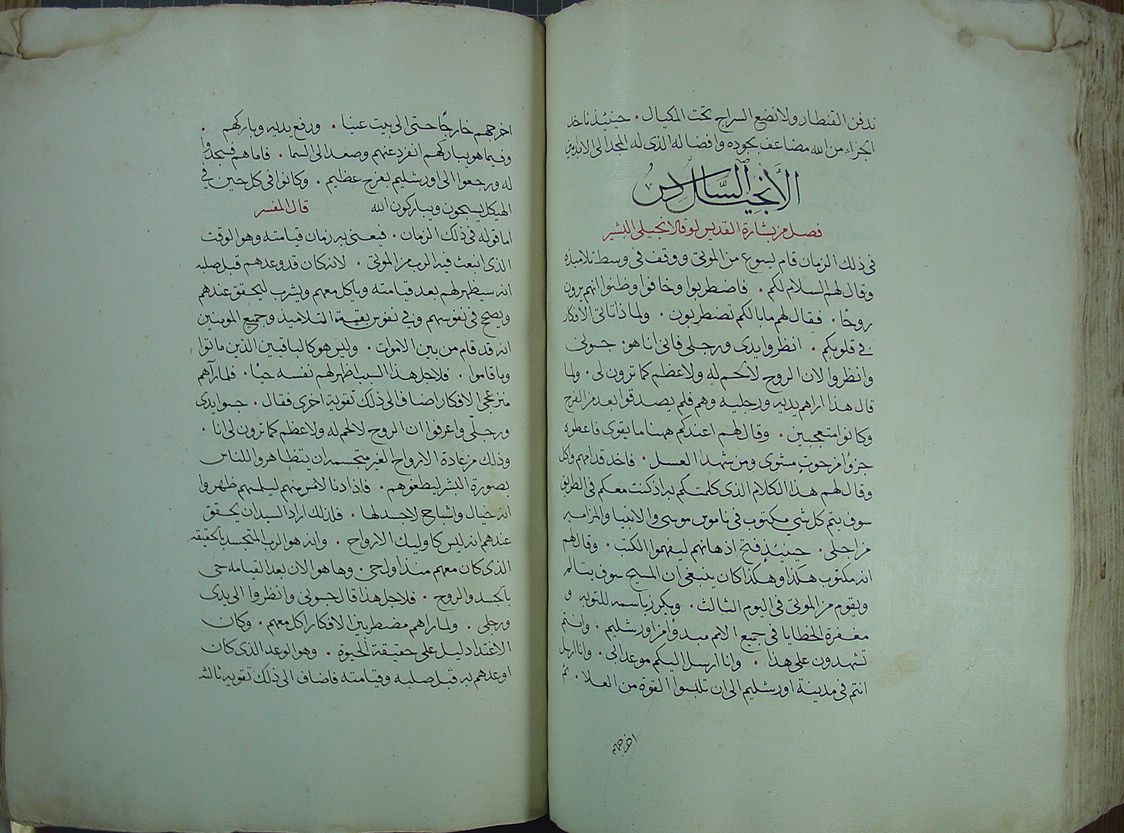 ندفن القنطار ولا نضع السراج تحت المكيال . حينيذ ناخد
الجزاء من الله مضاعف بجوده وافضاله الذى له المجد الى الابد امين
الأنجيل السَّادس
فصل من بشارة القديس لوقا الانجيلى البشير
فى ذلك الزمان قام يسوع من الموتى ووقف فى وسط تلاميده
وقال لهم السلام لكم . فاضطربوا وخافوا وظنوا انهم يرون
روحًا . فقال لهم ما بالكم تضطربون . ولماذا تاتى الأفكار
فى قلوبكم . انظروا يدى ورجلى فانى انا هو . جسونى
وانظروا لان الروح لا لحم له ولا عظم كما ترون لى . ولما
قال هذا اراهم يديه ورجليه وهم فلم يصدقوا بعد من الفرح
وكانوا متعجبين . وقال لهم اعندكم ههنا ما يقوى فاعطوه
جزوا من حوت مشوى ومن شهد العسل . فاخد قدامهم واكل
وقال لهم هذا الكلام الذى كلمتكم به اذ كنت معكم فى الطريق
سوف يتم كل شي مكتوب فى ناموس موسى والانبيا والمزامير
من اجلى . حينيذٍ فتح اذهانهم ليفهموا الكتب . وقال لهم
انه مكتوب هكذا وهكذا كان ينبغى ان المسيح سوف يتالم
ويقوم من الموتى فى اليوم الثالث . ويكرز باسمه للتوبه و
مغفرة الخطايا فى جميع الامم مبدوا من اورشليم . وانتم
تشهدون على هذا . وانا ارسل اليكم موعد ابى . وانا ارسل
انتم فى مدينة اورشليم الى ان تلبسوا القوة من العلا . ثم
اخرجهم
اخرجهم خارجًا حتى الى بيت عينا . ورفع يديه وباركهم .
وفيما هو يباركهم انفرد عنهم وصعد الى السما . فاما هم فسجدوا
له ورجعوا الى اورشليم بفرح عظيم . وكانوا فى كل حين فى
الهيكل يسبحون ويباركون الله قال المفسر
اما قوله فى ذلك الزمان . فيعنى به زمان قيامته وهو الوقت
الذى انبعث فيه الرب من الموتى . لانه كان قد وعدهم قبل صلبه
انه سيظهر لهم بعد قيامته وياكل معهم ويشرب ليتحقق عندهم
ويصح فى نفوسهم وفى نفوس بقية التلاميذ وجميع المومنين
انه قد قام من بين الاموات . وليس هو كالباقيين الذين ماتوا
وما قاموا . فلاجل هذا السبب اظهر لهم نفسه حيًا . فلما رآهم
منزعجى الافكار اضاف الى ذلك تقوية اخرى فقال . جسوا يدى
ورجلى واعرفوا ان الروح لا لحم له ولا عظم كما ترون لى انا .
وذلك من عادة الارواح الغير متجسمه ان يتظاهروا للناس
بصورة البشر ليطغوهم . فاذا دنا الانس منهم ليلمسهم ظهروا
انه خيال واشباح لا جسد لها . فلذلك اراد السيد ان يحقق
عندهم انه ليس كاوليك الارواح . وانه هو الرب المتجسد بالحقيقه
الذى كان معهم منذ اول حى . وها هو الان بعد القيامه حى
بالجسد والروح . فلاجل هذا قال جسونى وانظروا الى يدى
ورجلى . ولما راهم مضطربين الافكار اكل معهم . وكان
الاغتدا دليل على حقيقة الحيوة . وهو الوعد الذى كان
اوعدهم به قبل صلبه وقيامته فاضاف الى ذلك تقويه ثالثه